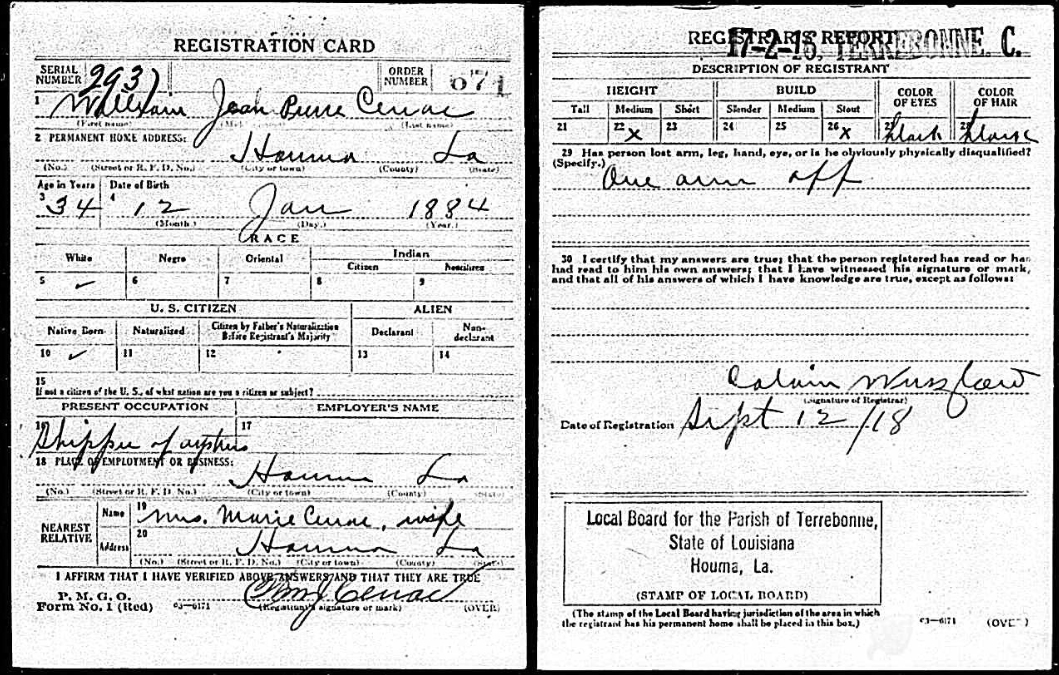 REGISTRATION CARD
SERIAL NUMBER 293
ORDER NUMBER 671
1 William Jean Pierre Cenac
(First name) (Last name)
2 PERMANENT HOME ADDRESS:
Houma La
(No.) (Street or R. F. D. No.) (City or town) (County) (State)
Age in Years Date of Birth
3 34 4 12 Jan 1884
(Month.) (Day.) (Year.)
RACE
White Negro Oriental Indian
Citizen Noncitizen
5 ✓ 6 7 8 9
U. S. CITIZEN ALIEN
Native Born Naturalized Citizen by Father's Naturalization Before Registrant's Majority Declarant Non-declarant
10 ✓ 11 12 13 14
15
If not a citizen of the U. S., of what nation are you a citizen or subject?
PRESENT OCCUPATION EMPLOYER'S NAME
16 Shipper of oysters 17
18 PLACE OF EMPLOYMENT OR BUSINESS:
Houma La
(No.) (Street or R. F. D. No.) (City or town) (County) (State)
NEAREST RELATIVE
Name 19 Mrs. Marie Cenac, wife
Address 20 Houma La
(No.) (Street or R. F. D. No.) (City or town) (County) (State)
I AFFIRM THAT I HAVE VERIFIED ABOVE ANSWERS AND THAT THEY ARE TRUE
P. M. G. O.
Form No. 1 (Red) 03—6171 (Registrant's signature or mark) (OVER)
Wm J Cenac
REGISTRAR'S REPORT
17-2-18, TERREBONNE. C.
DESCRIPTION OF REGISTRANT
HEIGHT BUILD COLOR OF EYES COLOR OF HAIR
Tall Medium Short Slender Medium Stout
21 22 x 23 24 25 26 x 27 black 28 black
29 Has person lost arm, leg, hand, eye, or is he obviously physically disqualified?
(Specify.)
One arm off
30 I certify that my answers are true; that the person registered has read or has
had read to him his own answers; that I have witnessed his signature or mark,
and that all of his answers of which I have knowledge are true, except as follows:
Calvin
(Signature of Registrar)
Date of Registration Sept 12/18
Local Board for the Parish of Terrebonne,
State of Louisiana
Houma, La.
(STAMP OF LOCAL BOARD)
(The stamp of the Local Board having jurisdiction of the area in which
the registrant has his permanent home shall be placed in this box.)
03—6171 (OVER)